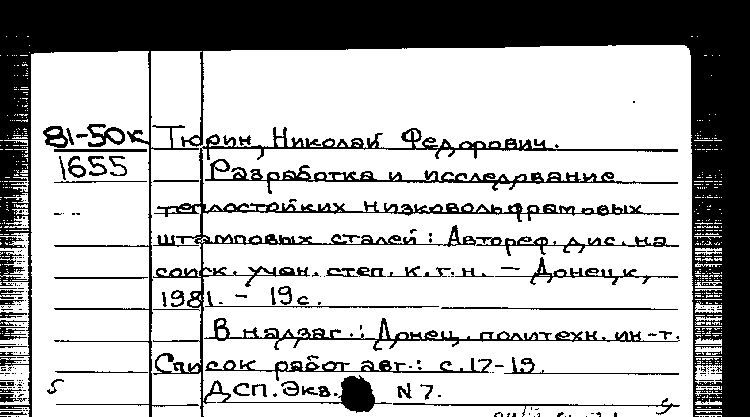 81-50к Тюрин, Николай Федорович.
1655 Разработка и исследование
теплостойких низковольфрамовых
штамповых сталей : Автореф. дис. на
соиск. учен. степ. к.т.н. - Донецк,
1981. - 19 с.
В надзаг.: Донец. политехн. ин-т.
Список работ авт.: с. 17-19.
ДСП. Экз. N 7.